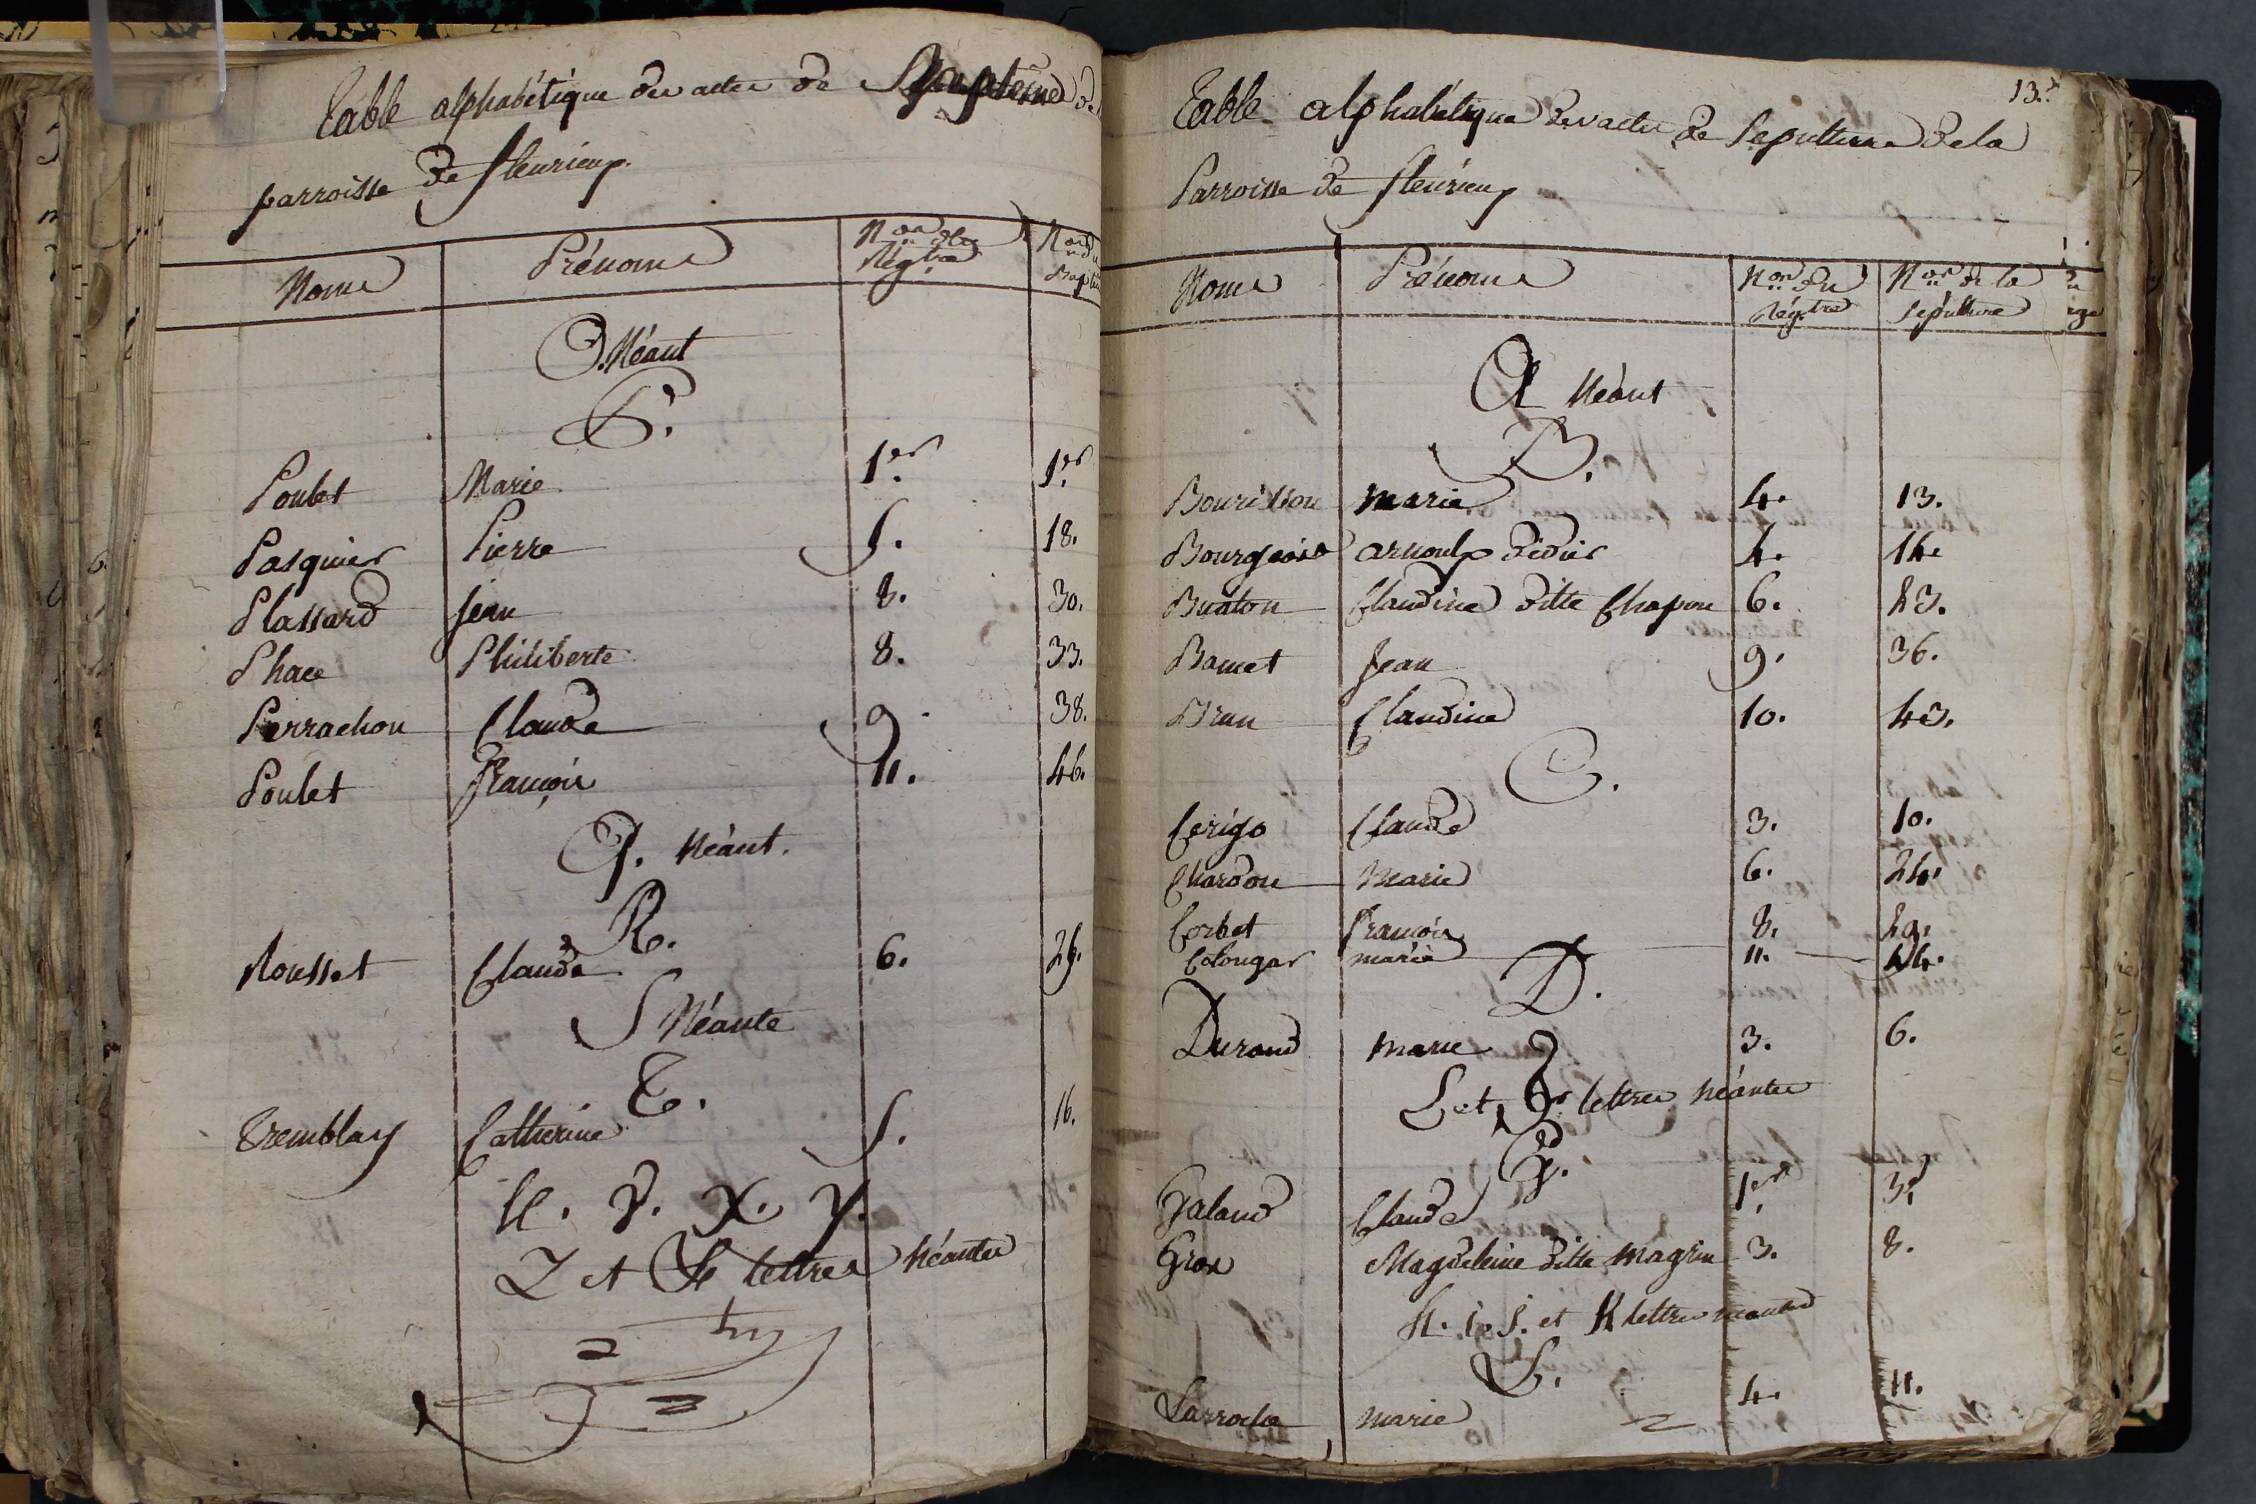 Table alphabétique des actes de Baptême de
parroisse de fleurieux.
Noms Prénoms Nos. du Régtre Nos. du Baptme
O. Néant
P.
Poulet Marie 1er. 1er.
Pasquier Pierre 5. 18.
Plassard Jean 8. 30.
Phace Philiberte 8. 33.
Perrachon Claude 9. 38.
Poulet François 11. 46.
Q. Néant.
R.
Rousset Claude 6. 25.
S Néante
T.
Tremblay Catherine 5. 16.
U. V. X. Y.
Z et & lettres Néantes
fin
13.e
Table alphabétique des actes de Sepulture de la
Parroisse de fleurieux
Noms Prénoms Nos. du Régistre Nos. de la Sépulture
A Néant
B.
Bourisson marie 4. 13.
Bourgeois arnoulp didier 4. 14.
Buaton Claudine ditte Chapon 6. 23.
Bamet Jean 9. 36.
Brun Claudine 10. 43.
C.
Cerigo Claude 3. 10.
Chardon Marie 6. 24.
Corbet François 8. 29.
Colongar marie 11. 44.
D.
Durand marie 3. 6.
E et F lettres Néantes
G.
Galand Claude 1er. 3e.
Gros Magdeleine ditte magrin 3. 8.
H. i. J. et K lettres néantes
L.
Larroche marie 4. 11.